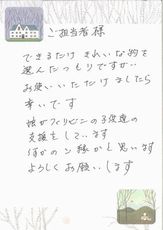 ご担当者 様
できるだけ きれいな物を
選んだつもりですが‥
お使いいただけましたら
幸いです
娘がフィリピンの子供達の
支援をしています
何かのご縁かと思います
よろしくお願いします